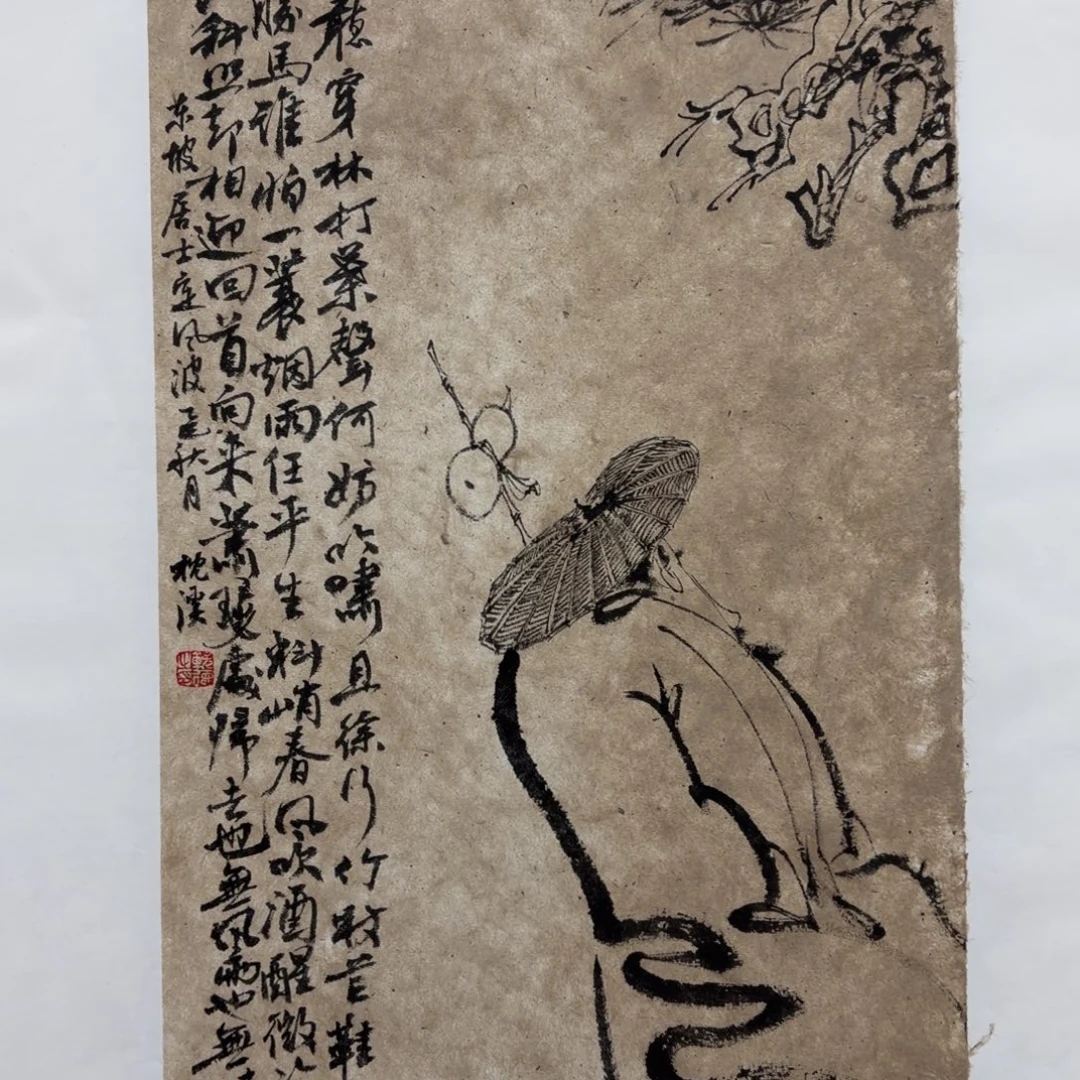 聽穿林打葉聲何妨吟嘯且徐行竹杖芒鞋
勝馬誰怕一蓑烟雨任平生料峭春風吹酒醒微冷
斜照却相迎回首向来蕭瑟處歸去也無風雨也無
东坡居士定风波乙巳秋月
枕溪